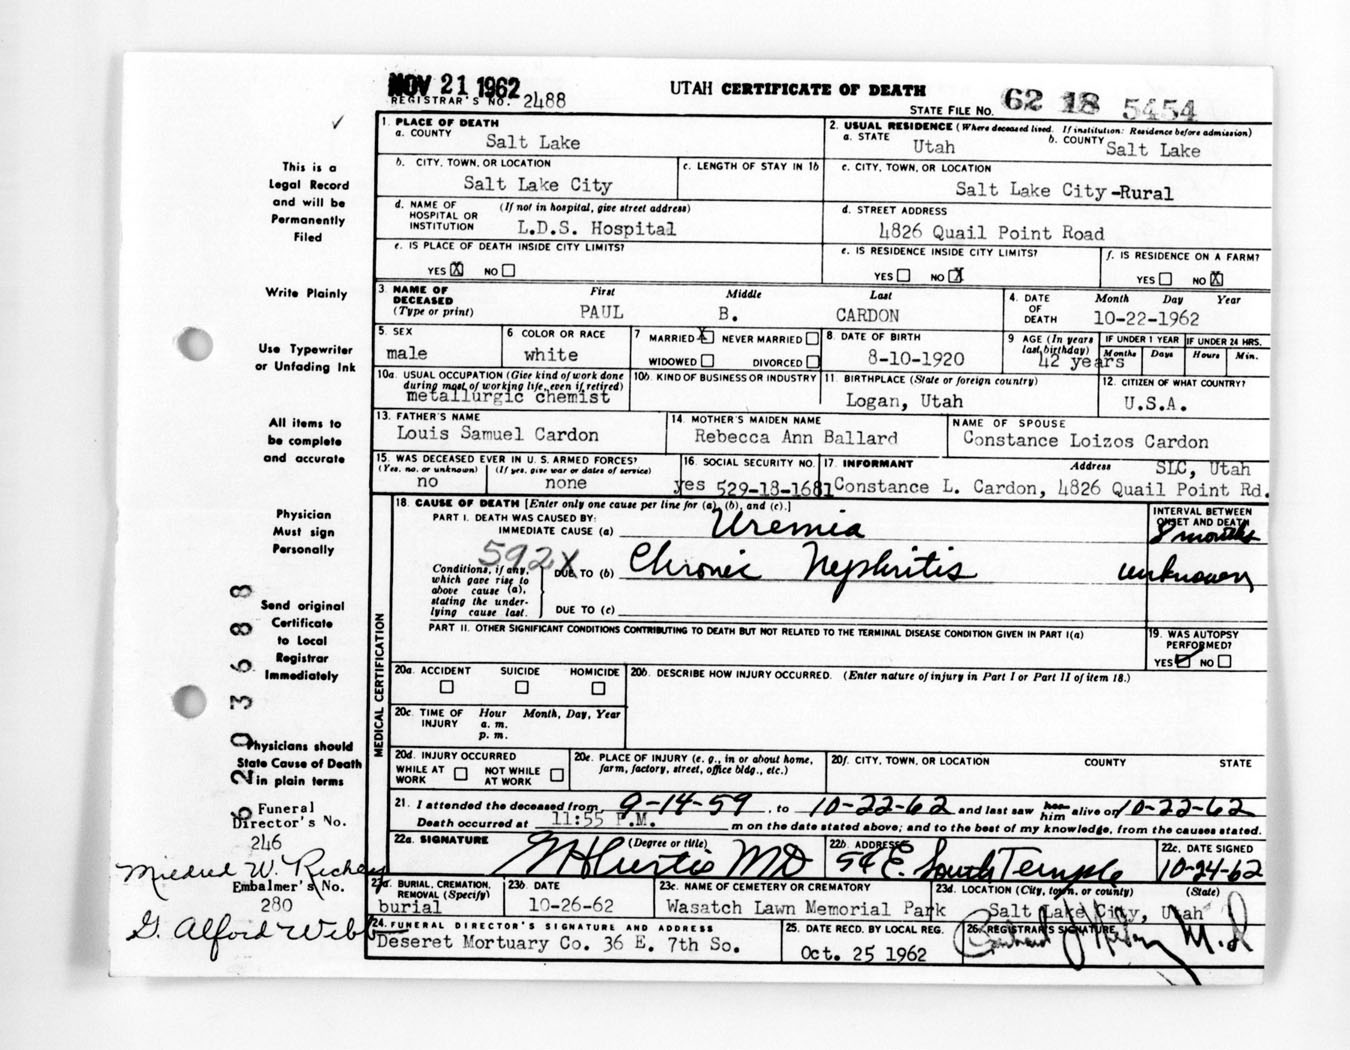 NOV 21 1962
REGISTRAR'S NO. 2488
UTAH CERTIFICATE OF DEATH
STATE FILE NO. 62 18 5454
This is a
Legal Record
and will be
Permanently
Filed
Write Plainly
Use Typewriter
or Unfading Ink
All items to
be complete
and accurate
Physician
Must sign
Personally
Send original
Certificate
to Local
Registrar
Immediately
Physicians should
State Cause of Death
in plain terms
Funeral
Director's No.
246
Mildred W. Richey
Embalmer's No.
280
G. Alford Webb
1. PLACE OF DEATH
a. COUNTY
Salt Lake
2. USUAL RESIDENCE (Where deceased lived. If institution: Residence before admission)
a. STATE
Utah
b. COUNTY
Salt Lake
b. CITY, TOWN, OR LOCATION
Salt Lake City
c. LENGTH OF STAY IN 1b
c. CITY, TOWN, OR LOCATION
Salt Lake City-Rural
d. NAME OF HOSPITAL OR INSTITUTION (If not in hospital, give street address)
L.D.S. Hospital
d. STREET ADDRESS
4826 Quail Point Road
e. IS PLACE OF DEATH INSIDE CITY LIMITS?
YES X NO
e. IS RESIDENCE INSIDE CITY LIMITS?
YES NO X
f. IS RESIDENCE ON A FARM?
YES NO X
3. NAME OF DECEASED (Type or print)
First Middle Last
PAUL B. CARDON
4. DATE OF DEATH
Month Day Year
10-22-1962
5. SEX
male
6 COLOR OR RACE
white
7 MARRIED X NEVER MARRIED
WIDOWED DIVORCED
8. DATE OF BIRTH
8-10-1920
9 AGE (In years last birthday)
42 years
IF UNDER 1 YEAR
Months Days
IF UNDER 24 HRS.
Hours Min.
10a. USUAL OCCUPATION (Give kind of work done during most of working life, even if retired)
metallurgic chemist
10b. KIND OF BUSINESS OR INDUSTRY
11. BIRTHPLACE (State or foreign country)
Logan, Utah
12. CITIZEN OF WHAT COUNTRY?
U.S.A.
13. FATHER'S NAME
Louis Samuel Cardon
14. MOTHER'S MAIDEN NAME
Rebecca Ann Ballard
NAME OF SPOUSE
Constance Loizos Cardon
15. WAS DECEASED EVER IN U. S. ARMED FORCES?
(Yes, no, or unknown) (If yes, give war or dates of service)
no none
16. SOCIAL SECURITY NO.
yes 529-18-1681
17. INFORMANT Address
SLC, Utah
Constance L. Cardon, 4826 Quail Point Rd.
MEDICAL CERTIFICATION
18. CAUSE OF DEATH [Enter only one cause per line for (a), (b), and (c).]
PART I. DEATH WAS CAUSED BY:
IMMEDIATE CAUSE (a) Uremia
INTERVAL BETWEEN ONSET AND DEATH
8 months
592X
Conditions, if any, which gave rise to above cause (a), stating the underlying cause last.
DUE TO (b) Chronic Nephritis
unknown
DUE TO (c)
PART II. OTHER SIGNIFICANT CONDITIONS CONTRIBUTING TO DEATH BUT NOT RELATED TO THE TERMINAL DISEASE CONDITION GIVEN IN PART I(a)
19. WAS AUTOPSY PERFORMED?
YES ✓ NO
20a. ACCIDENT SUICIDE HOMICIDE
20b. DESCRIBE HOW INJURY OCCURRED. (Enter nature of injury in Part I or Part II of item 18.)
20c. TIME OF INJURY Hour Month, Day, Year
a. m.
p. m.
20d. INJURY OCCURRED
WHILE AT WORK NOT WHILE AT WORK
20e. PLACE OF INJURY (e. g., in or about home, farm, factory, street, office bldg., etc.)
20f. CITY, TOWN, OR LOCATION COUNTY STATE
21. I attended the deceased from, 9-14-59, to 10-22-62 and last saw her him alive on 10-22-62
Death occurred at 11:55 P.M. m on the date stated above; and to the best of my knowledge, from the causes stated.
22a. SIGNATURE (Degree or title)
Curtis MD
22b. ADDRESS
54 E. South Temple
22c. DATE SIGNED
10-24-62
23a. BURIAL, CREMATION, REMOVAL (Specify)
burial
23b. DATE
10-26-62
23c. NAME OF CEMETERY OR CREMATORY
Wasatch Lawn Memorial Park
23d. LOCATION (City, town, or county) (State)
Salt Lake City, Utah
24. FUNERAL DIRECTOR'S SIGNATURE AND ADDRESS
Deseret Mortuary Co. 36 E. 7th So.
25. DATE RECD. BY LOCAL REG.
Oct. 25 1962
26. REGISTRAR'S SIGNATURE
M.D.